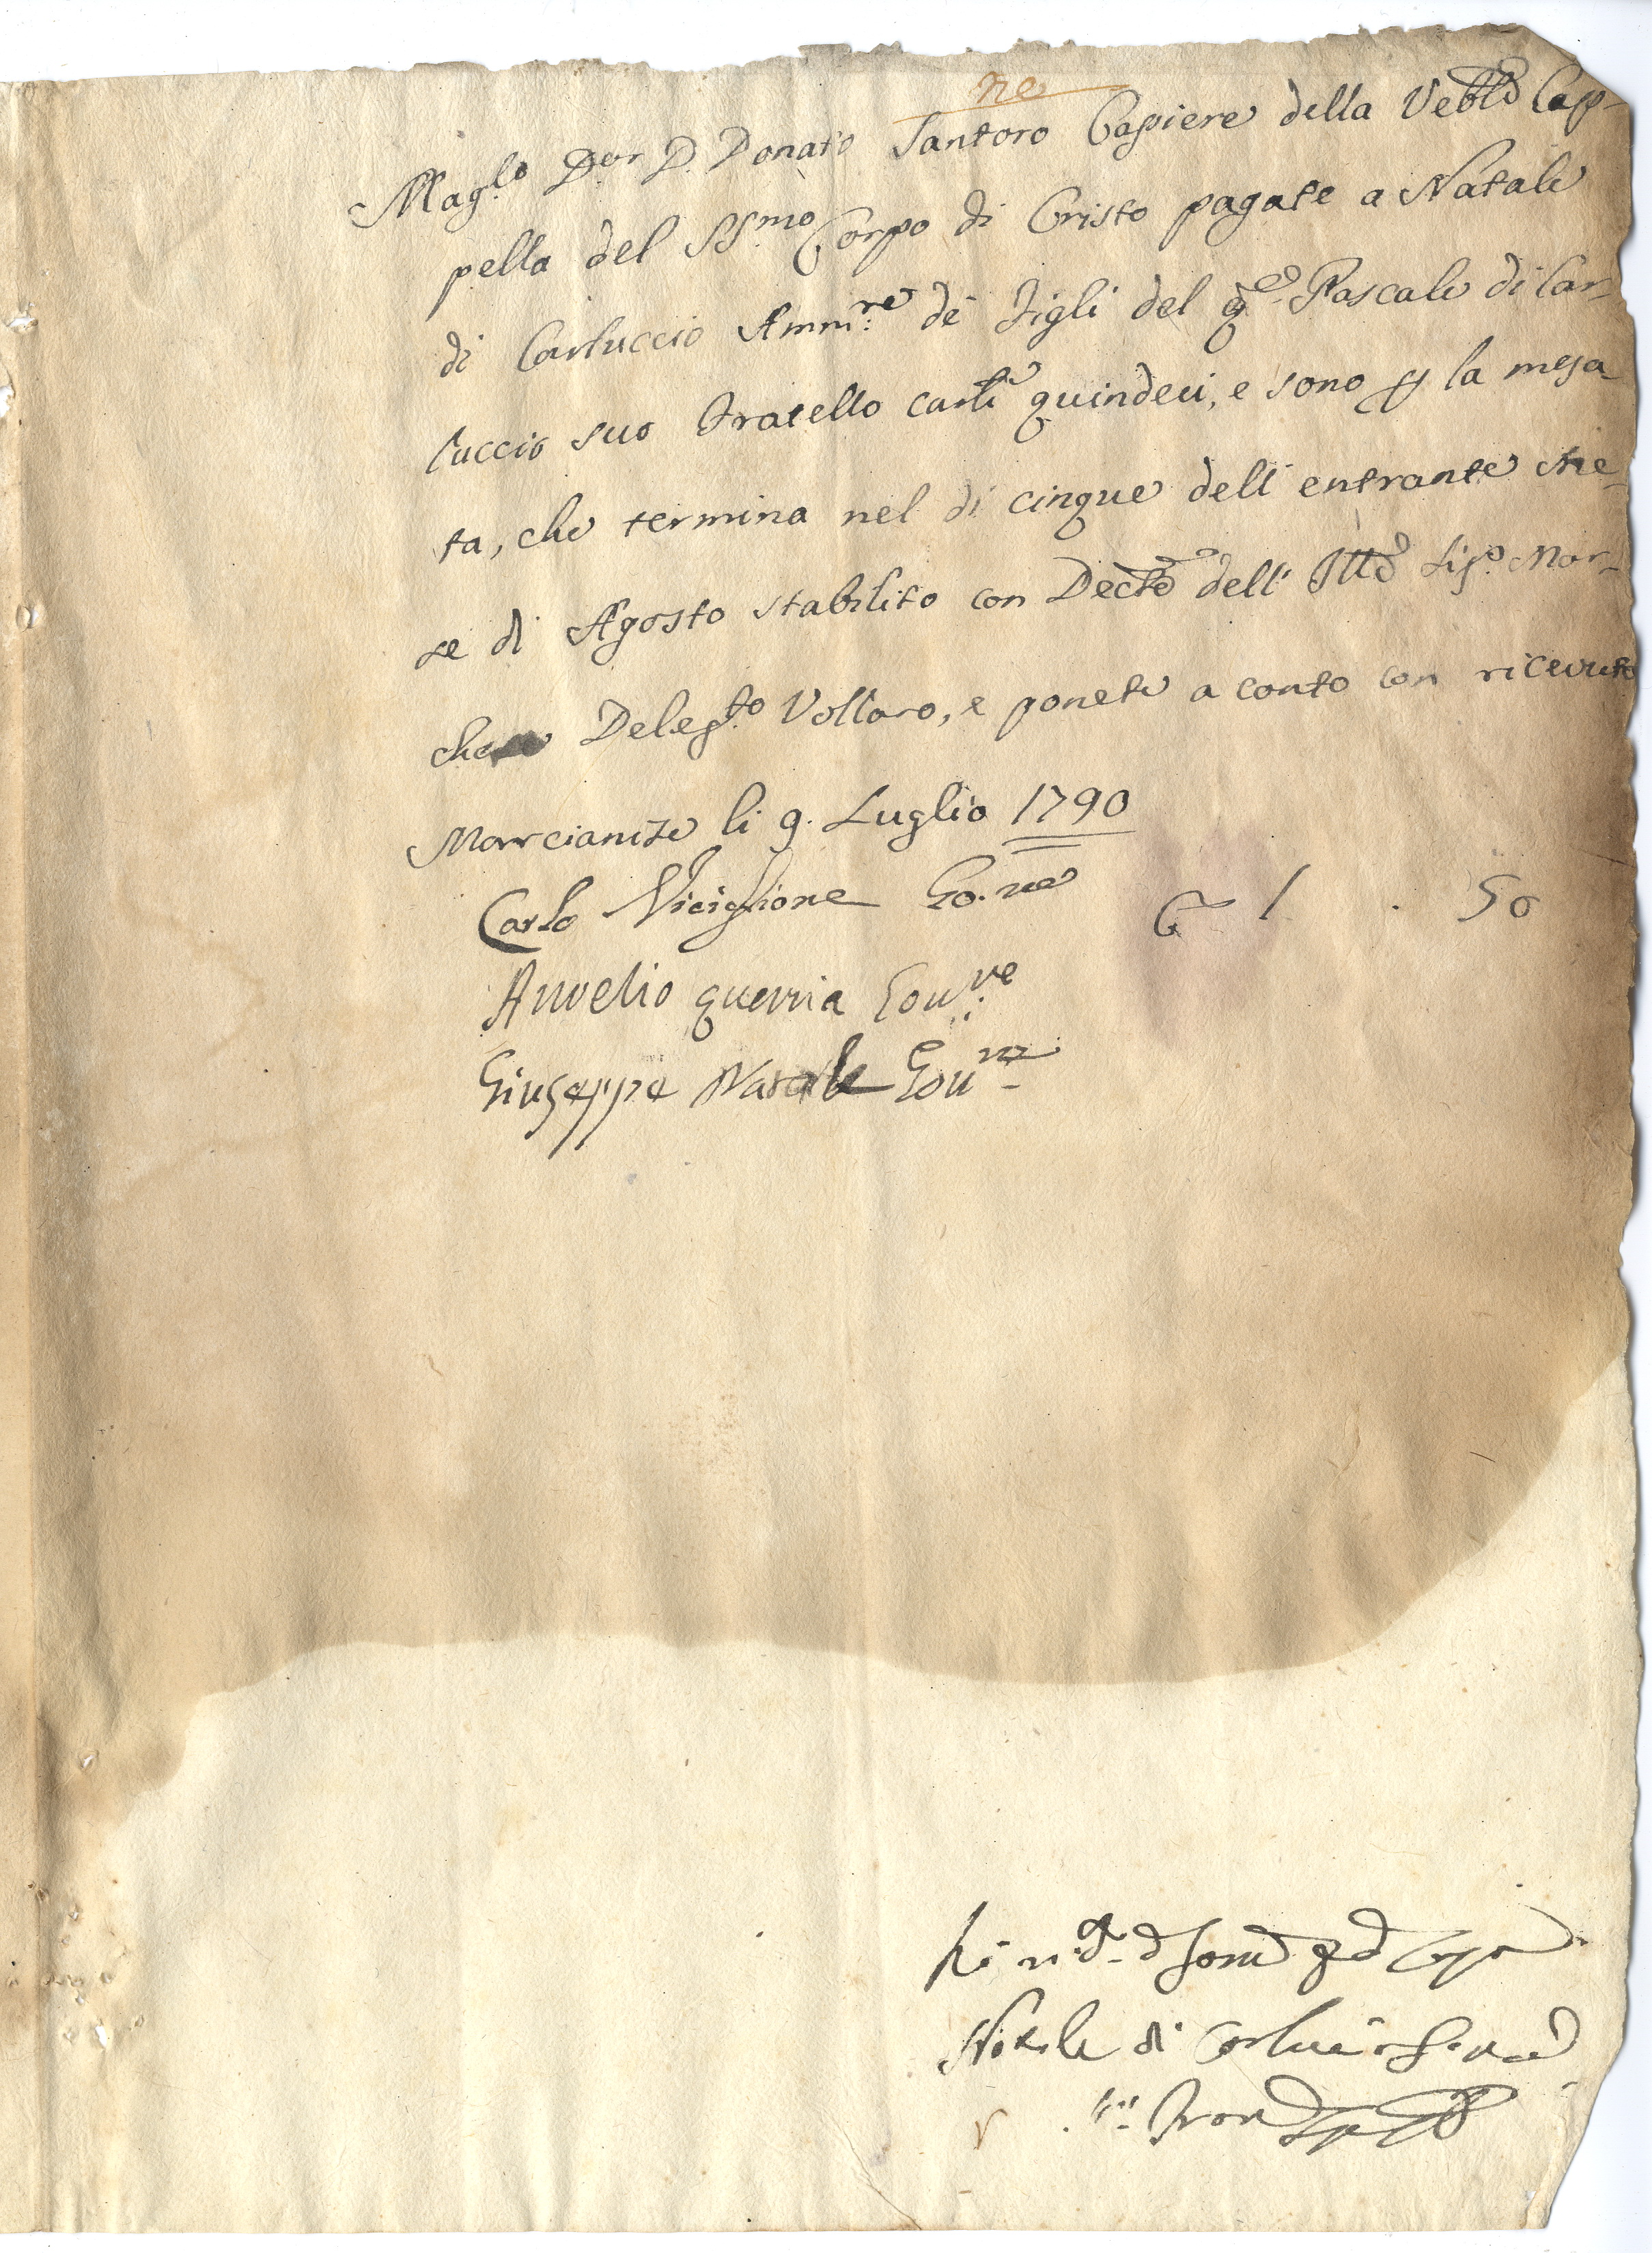 ne
Mag.lo D.or D. Donato Santoro Cassiere della Veble Cap-
pella del SSmo Corpo di Cristo pagate a Natale
di Carluccio Amm:re de Figli del qm Pascale di Car-
luccio suo Fratello carli quindeci, e sono p la mesa-
ta, che termina nel dì cinque dell' entrante Me-
se di Agosto stabilito con Decto dell' Illo Sig.o Mar-
chese Deleg.to Vollaro, e ponete a conto con ricevuto
Marcianise li 9. Luglio 1790
Carlo Viciglione Go.ne
1 . 50
Aurelio guerria Gou:re
Giuseppe Natale Gou.re
Natale di Carluccio